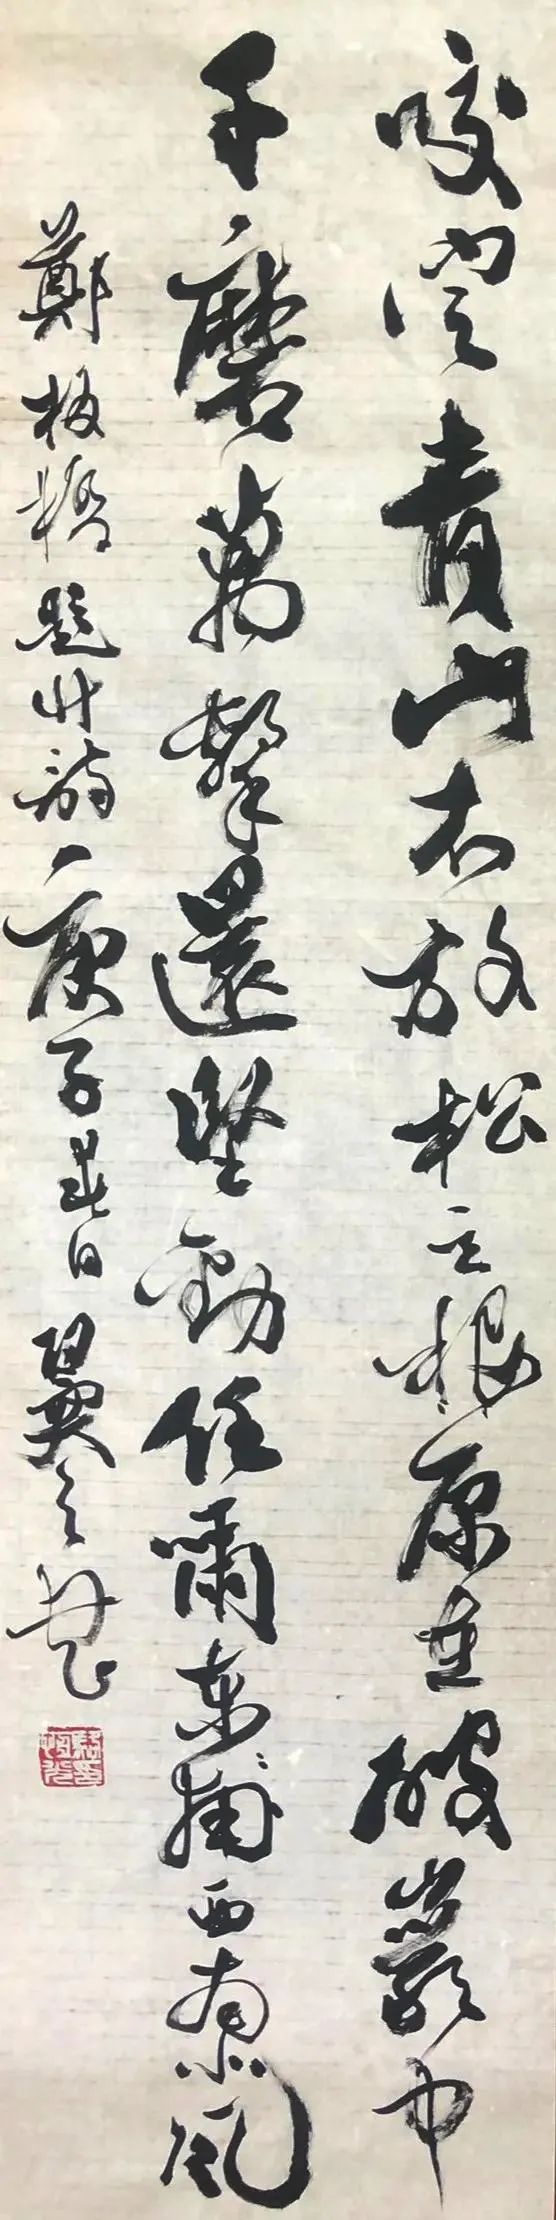 咬定青山不放松立根原在破巖中
千磨萬擊還堅勁任東西南北風
鄭板橋題竹詩庚子春日翼之書